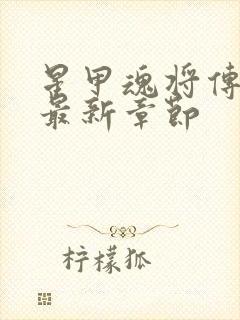 星甲魂将傳
最新章節
柠檬狐